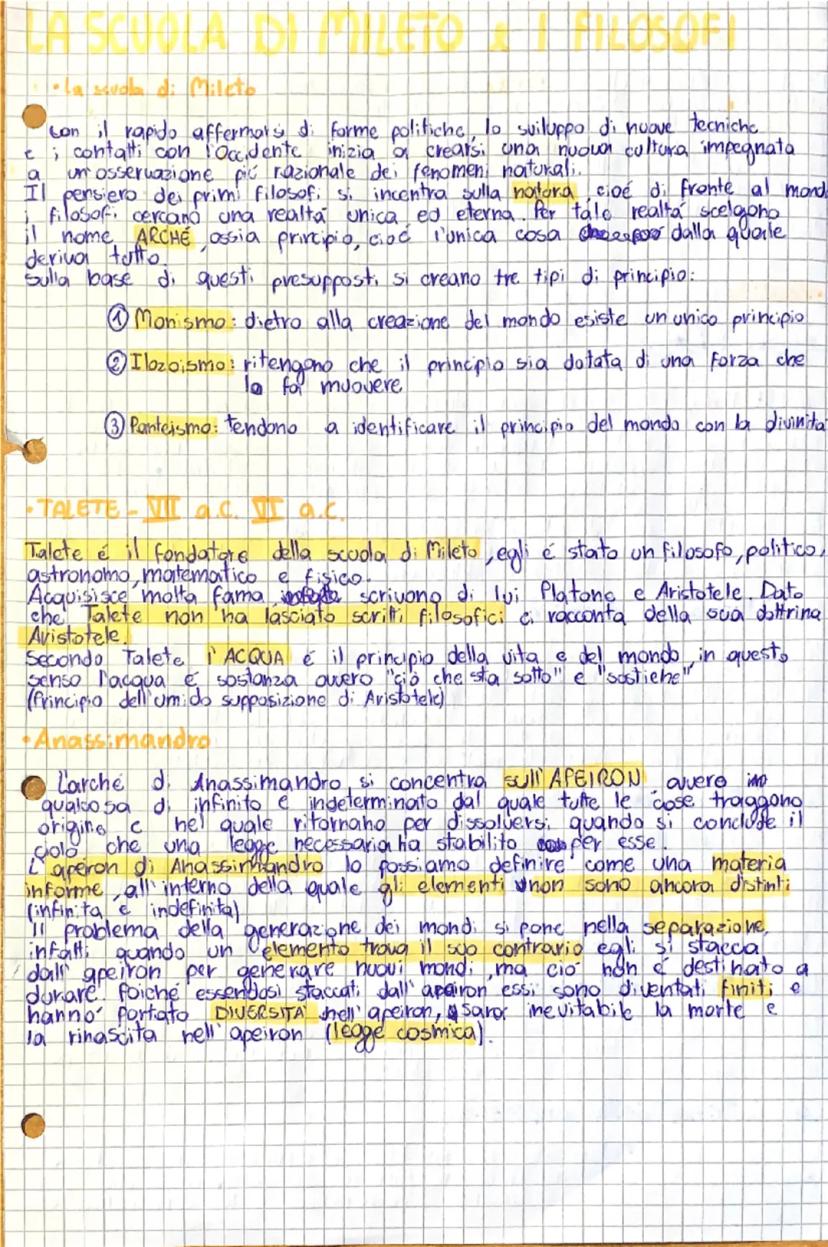 LA SCUOLA DI MILETO e I FILOSOFI
• la scuola di Mileto
Con il rapido affermars di forme politiche, lo sviluppo di nuove tecniche
e i contatti con l'Occidente inizia a crearsi una nuova cultura impegnata
a un'osservazione più razionale dei fenomeni naturali.
Il pensiero dei primi filosofi si incentra sulla natura, cioé di fronte al mond
i filosofi cercano una realtà unica ed eterna. Per tale realtà scelgono
il nome ARCHÉ, ossia principio, cioé l'unica cosa dalla quale
deriva tutto.
Sulla base di questi presupposti si creano tre tipi di principio:
① Monismo: dietro alla creazione del mondo esiste un unico principio
② Ilozoismo: ritengono che il principio sia dotata di una forza che
la fa muovere
③ Panteismo: tendono a identificare il principio del mondo con la divinità
• TALETE - VII a.C. VI a.C.
Talete é il fondatore della scuola di Mileto, egli é stato un filosofo, politico,
astronomo, matematico e fisico.
Acquisisce molta fama, scrivono di lui Platone e Aristotele. Dato
che Talete non ha lasciato scritti filosofici ci racconta della sua dottrina
Aristotele.
Secondo Talete l'ACQUA é il principio della vita e del mondo, in questo
senso l'acqua é sostanza ovvero "ciò che sta sotto" e "sostiene"
(Principio dell'umido supposizione di Aristotele)
• Anassimandro
L'arché di Anassimandro si concentra sull'APEIRON, ovvero
qualcosa di infinito e indeterminato dal quale tutte le cose traggono
origine e nel quale ritornano per dissolversi, quando si conclude il
ciclo che una legge necessaria ha stabilito per esse.
L'aperon di Anassimandro lo possiamo definire come una materia
informe, all'interno della quale gli elementi non sono ancora distinti
(infinita e indefinita)
Il problema della generazione dei mondi si pone nella separazione,
infatti quando un elemento trova il suo contrario egli si stacca
dall'apeiron per generare nuovi mondi, ma ciò non é destinato a
durare. Poiché essendosi staccati dall'apeiron essi sono diventati finiti e
hanno portato DIVERSITÀ nell'apeiron, sarà inevitabile la morte e
la rinascita nell'apeiron (legge cosmica).